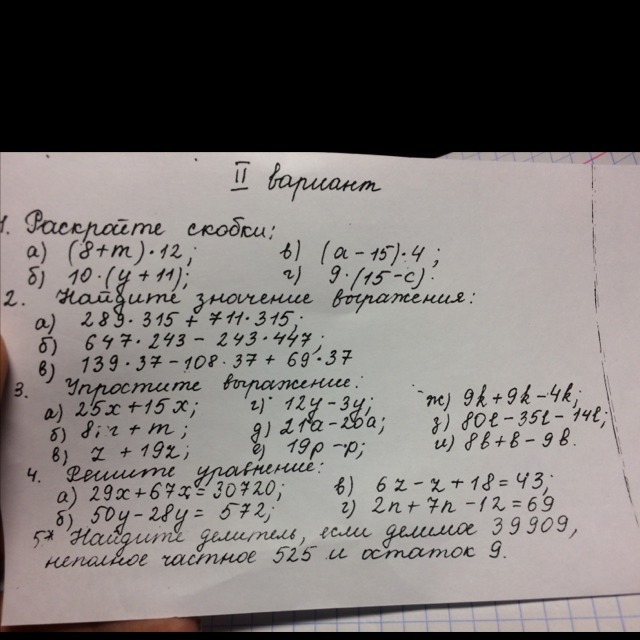 II вариант
1. Раскройте скобки:
а) (8+m)·12; в) (a-15)·4;
б) 10·(y+11); г) 9·(15-c).
2. Найдите значение выражения:
а) 289·315+711·315;
б) 647·243-243·447;
в) 139·37-108·37+69·37
3. Упростите выражение:
а) 25x+15x; г) 12y-3y; ж) 9k+9k-4k;
б) + m; д) 21a-20a; з) 80l-35l-14l;
в) z+19z; е) 19p-p; и) 8b+b-9b.
4. Решите уравнение:
а) 29x+67x=30720; в) 6z-z+18=43;
б) 50y-28y=572; г) 2n+7n-12=69
5* Найдите делитель, если делимое 39909,
неполное частное 525 и остаток 9.